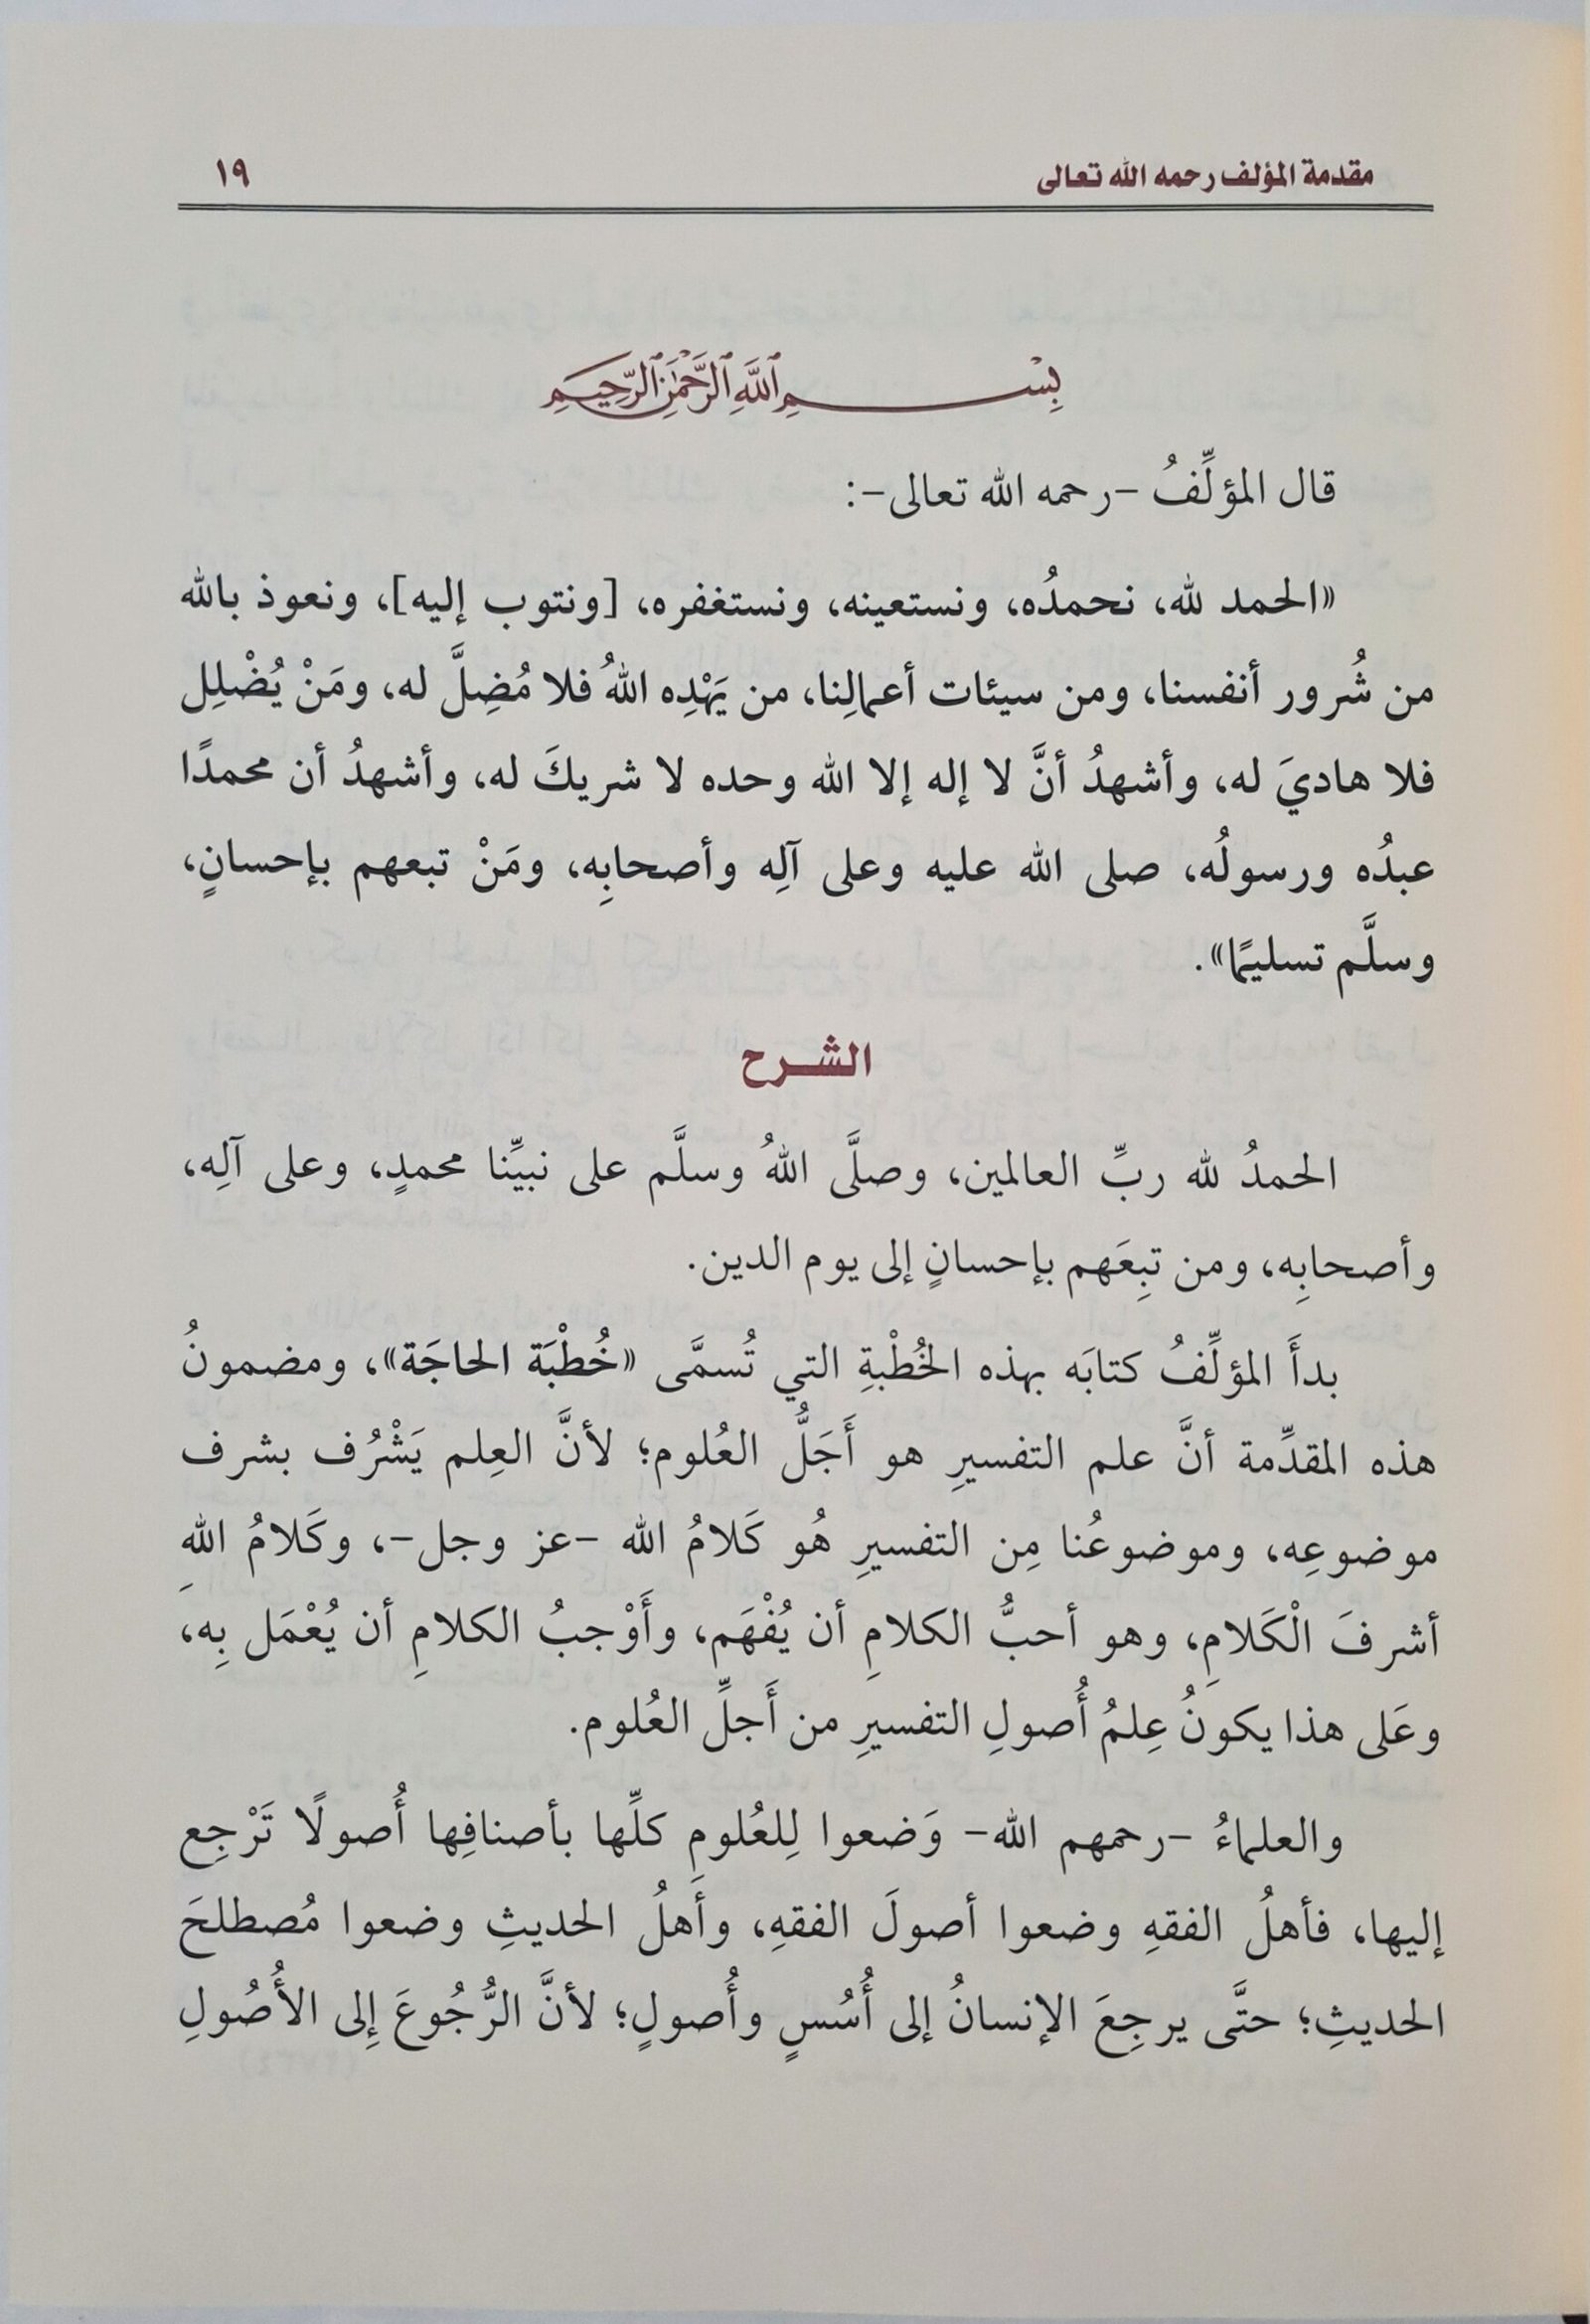 مقدمة المؤلف رحمه الله تعالى
١٩
بِسْمِ ٱللَّهِ ٱلرَّحْمَٰنِ ٱلرَّحِيمِ
قال المؤلِّفُ –رحمه الله تعالى–:
«الحمد لله، نحمدُه، ونستعينه، ونستغفره، [ونتوب إليه]، ونعوذ بالله
من شُرور أنفسنا، ومن سيئات أعمالِنا، من يَهْدِه اللهُ فلا مُضِلَّ له، ومَنْ يُضْلِل
فلا هاديَ له، وأشهدُ أنَّ لا إله إلا الله وحده لا شريكَ له، وأشهدُ أن محمدًا
عبدُه ورسولُه، صلى الله عليه وعلى آلِه وأصحابِه، ومَنْ تبعهم بإحسانٍ،
وسلَّم تسليمًا».
الشـرح
الحمدُ لله ربِّ العالمين، وصلَّى اللهُ وسلَّم على نبيِّنا محمدٍ، وعلى آلِه،
وأصحابِه، ومن تبِعَهم بإحسانٍ إلى يوم الدين.
بدأَ المؤلِّفُ كتابَه بهذه الخُطْبةِ التي تُسمَّى «خُطْبَة الحاجَة»، ومضمونُ
هذه المقدِّمة أنَّ علم التفسيرِ هو أَجَلُّ العُلوم؛ لأنَّ العِلم يَشْرُف بشرف
موضوعِه، وموضوعُنا مِن التفسيرِ هُو كَلامُ الله –عز وجل–، وكَلامُ اللهِ
أشرفَ الْكَلامِ، وهو أحبُّ الكلامِ أن يُفْهَم، وأَوْجبُ الكلامِ أن يُعْمَل بِه،
وعَلى هذا يكونُ عِلمُ أُصولِ التفسيرِ من أَجلِّ العُلوم.
والعلماءُ –رحمهم الله– وَضعوا لِلعُلومِ كلِّها بأصنافِها أُصولًا تَرْجِع
إليها، فأهلُ الفقهِ وضعوا أصولَ الفقهِ، وأَهلُ الحديثِ وضعوا مُصطلحَ
الحديثِ؛ حتَّى يرجِعَ الإنسانُ إلى أُسُسٍ وأُصولٍ؛ لأنَّ الرُّجُوعَ إِلى الأُصُولِ